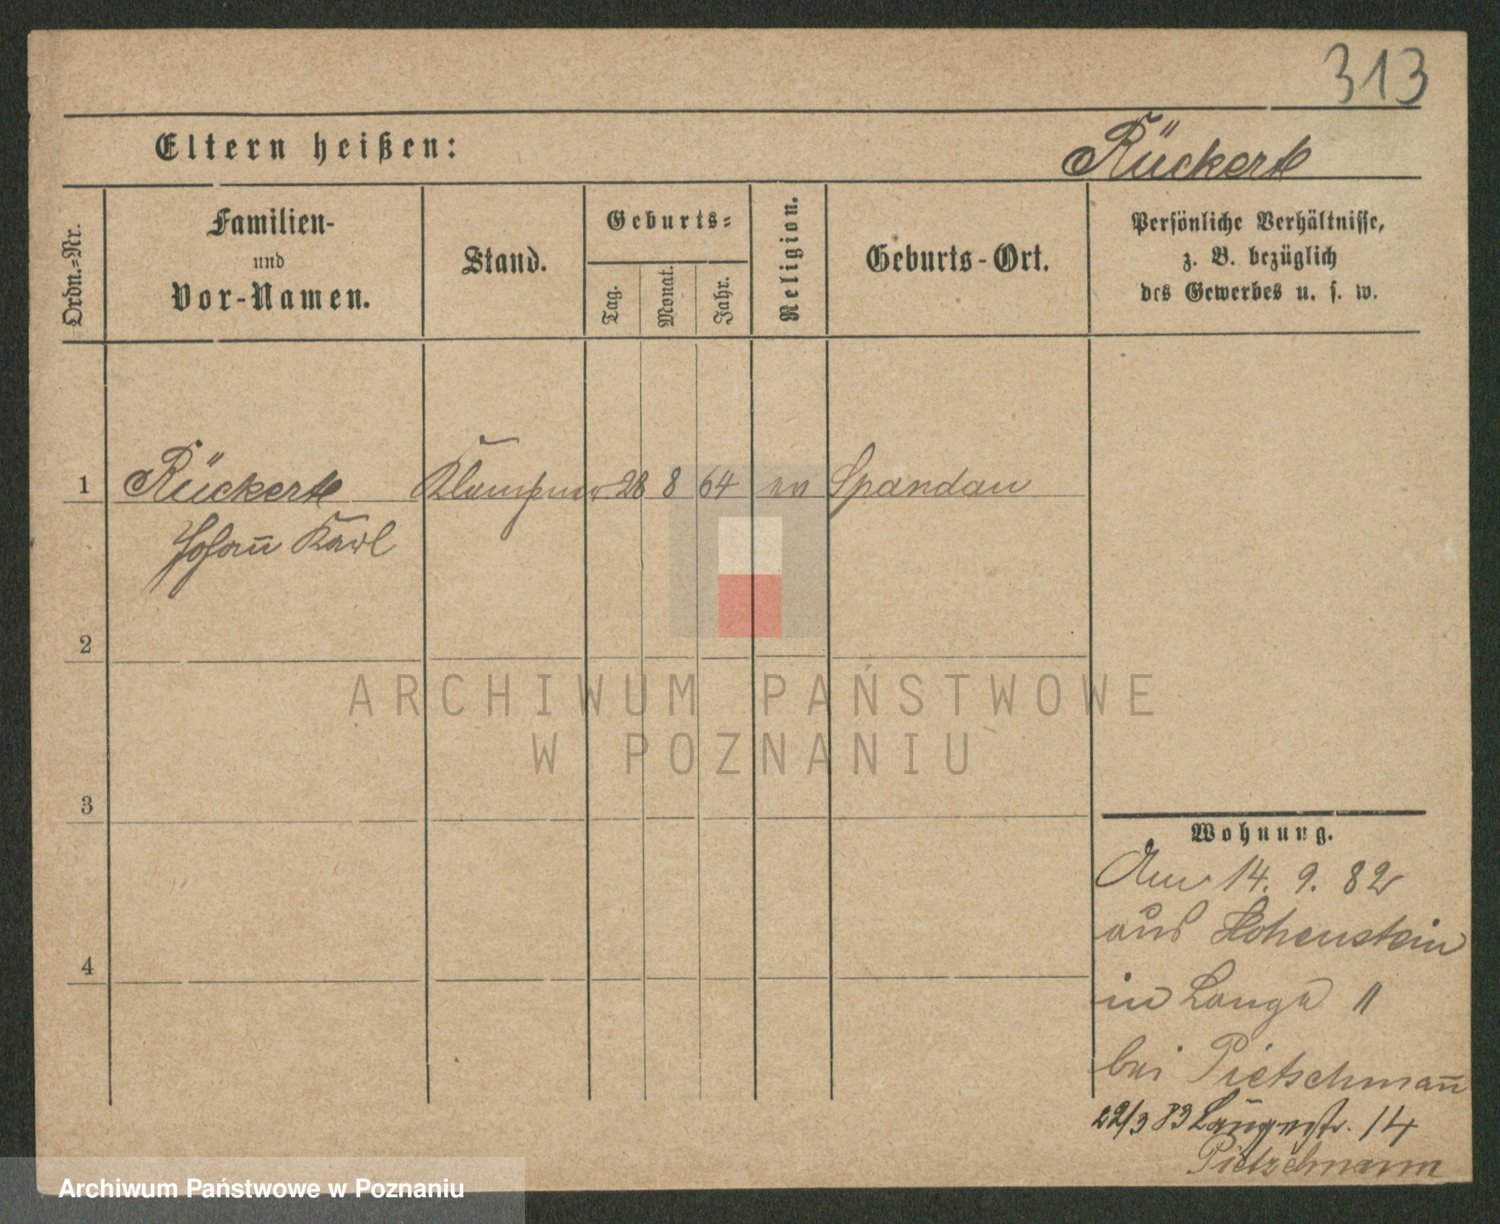 313
Eltern heißen:
Rückert
Ordn.-Nr.
Familien-
und
Vor-Namen.
Stand.
Geburts-
Tag.
Monat.
Jahr.
Religion.
Geburts-Ort.
Persönliche Verhältnisse,
z. B. bezüglich
des Gewerbes u. s. w.
1 Rückert Klempner 28 8 64 ev Spandau
Johañ Karl
2
ARCHIWUM PAŃSTWOWE
W POZNANIU
3
4
Wohnung.
14. 9. 82
aus Hohenstein
in Lange 11
bei Pietschmañ
22/3 83 Langestr. 14
Pietzchmann
Archiwum Państwowe w Poznaniu